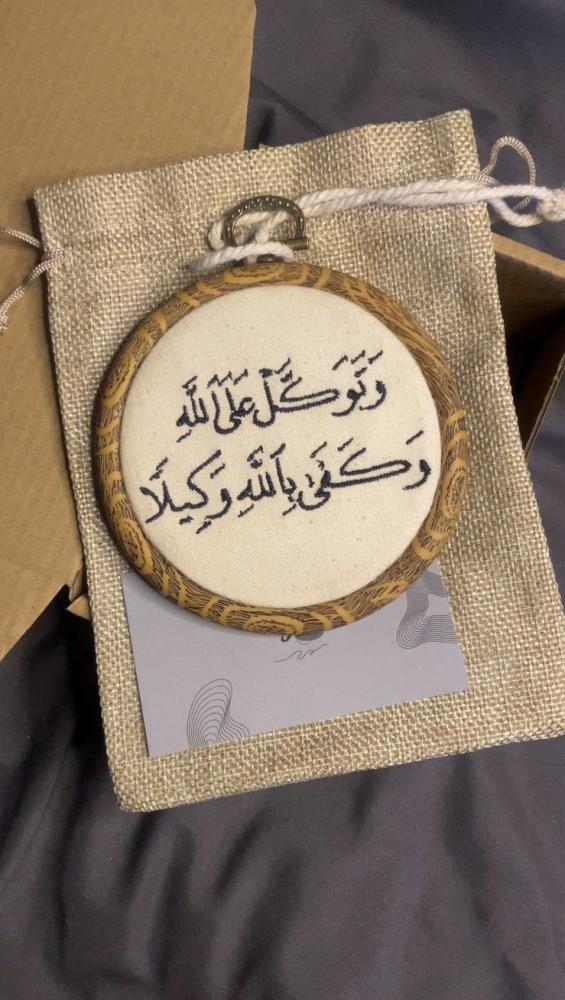 وَتَوَكَّلْ عَلَى اللَّهِ
وَكَفَىٰ بِاللَّهِ وَكِيلًا